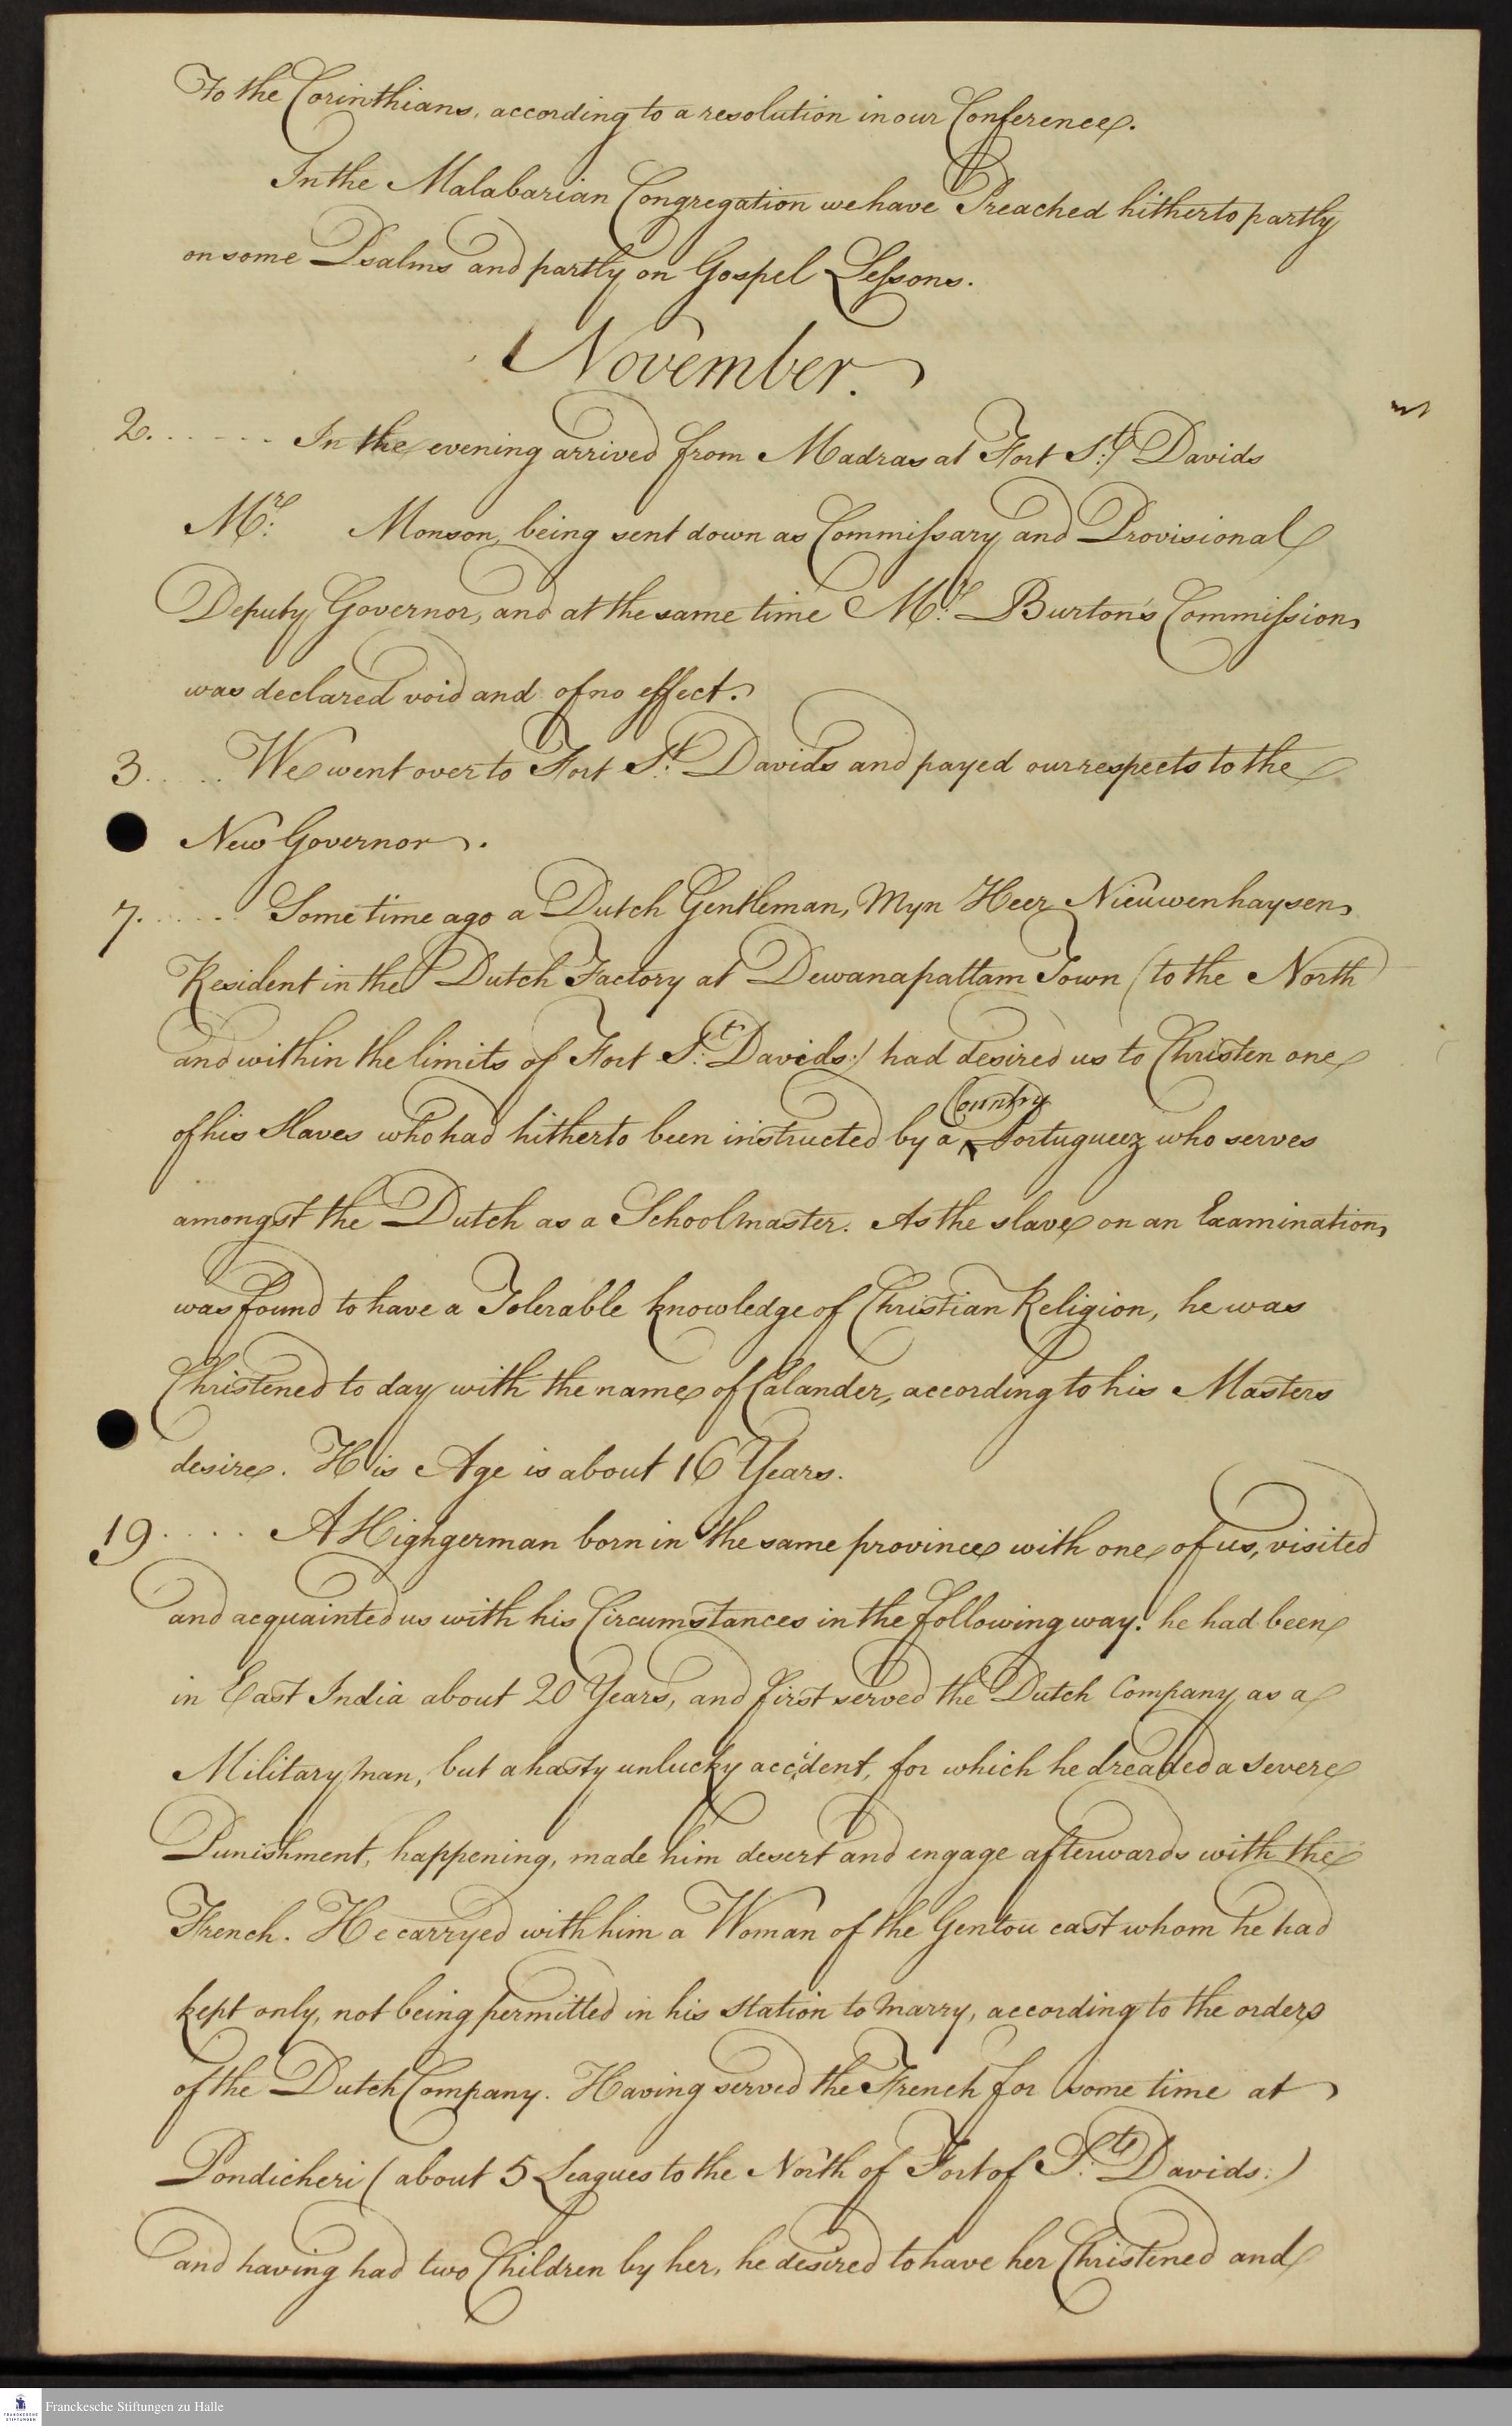 To the Corinthians, according to a resolution in our Conference.
In the Malabarian Congregation we have Preached hitherto partly
on some Psalms and partly on Gospel Leſsons.
November.
2. . . . . . . In the evening arrived from Madras at Fort St. Davids
Mr. Monson, being sent down as Commiſsary and Provisional
Deputy Governor, and at the same time Mr. Burton's Commiſsion
was declared void and of no effect.
3. . . . . . We went over to Fort St. Davids and payed our respects to the
New Governor.
7. . . . . . Some time ago a Dutch Gentleman, Myn Heer Nieuwenhaysen
Resident in the Dutch Factory at Dewanapattam Town (to the North
and within the limits of Fort St. Davids:) had desired us to Christen one
of his Slaves who had hitherto been instructed by a Country Portugueez who serves
amongst the Dutch as a Schoolmaster. As the slave on an Examination
was found to have a Tolerable knowledge of Christian Religion, he was
Christened to day with the name of Calander, according to his Masters
desire. His Age is about 16 Years.
19 . . . . A Highgerman born in the same province with one of us, visited
and acquainted us with his Circumstances in the following way: he had been
in East India about 20 Years, and first served the Dutch Company as a
Military man, but a hasty unlucky accident, for which he dreaded a severe
Punishment, happening, made him desert and engage afterwards with the
French. He carryed with him a Woman of the Gentou cast whom he had
kept only, not being permitted in his Station to marry, according to the orders
of the Dutch Company. Having served the French for some time at
Pondicheri (about 5 Leagues to the North of Fort of St. Davids:)
and having had two Children by her, he desired to have her Christened and
Franckesche Stiftungen zu Halle